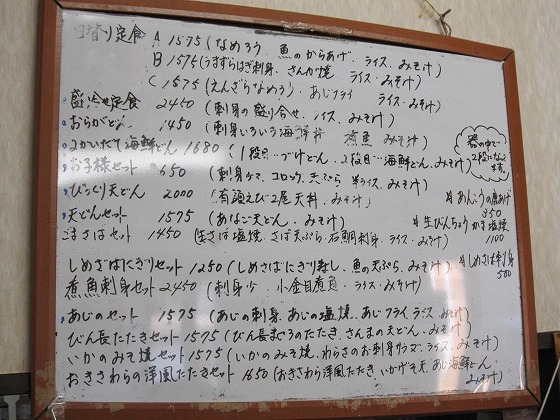 日替り定食 A 1575 (なめろう、魚のからあげ、ライス、みそ汁)
B 1575 (うすずらはぎ刺身、さんが焼 ライス・みそ汁)
C 1575 (えんざらなめろう)・あじフライ ライス・みそ汁)
盛合せ定食 2450 (刺身の盛り合せ、ライス、みそ汁)
おらがどん 1450 (刺身いろいろ海鮮丼 煮魚 みそ汁)
2かいだて海鮮どん 1680 (1段目…づけどん、2段目…海鮮どん、みそ汁)
器の中で
2段になって
ます
お子様セット 650 (刺身 コロッケ、天ぷら 半ライス・みそ汁)
びっくり天どん 2000 (有頭えび2尾 天丼、みそ汁)
あんこうの唐あげ
850
天どんセット 1575 (あなご天どん、みそ汁)
生びんちょうかま塩焼
1100
ごまさばセット 1450 (さば塩焼、さば天ぷら、石鯛刺身、ライス・みそ汁)
しめさば刺身
500
しめさばにぎりセット 1250 (しめさばにぎり寿し、魚の天ぷら、みそ汁)
煮魚刺身セット 2450 (刺身 小金目煮魚 ライス・みそ汁)
あじのセット 1575 (あじの刺身、あじの塩焼、あじフライ ライス、みそ汁)
びん長たたきセット 1575 (びん長まぐろのたたき、さんまの天どん、みそ汁)
いかのみそ焼セット 1575 (いかのみそ焼、わらさのお刺身サラダ、ライス、みそ汁)
おきさわらの洋風たたきセット 1650 (おきさわら洋風たたき、いかげそ天、あじ海鮮どん、
みそ汁)